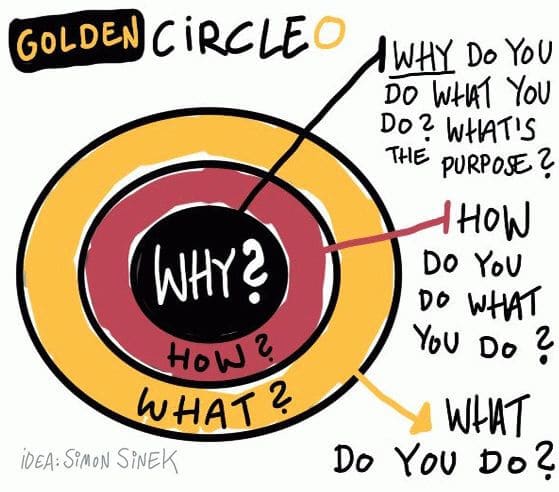 GOLDEN CIRCLE
WHY DO YOU
DO WHAT YOU
DO? WHAT'S
THE PURPOSE?
WHY?
HOW?
WHAT?
HOW
DO YOU
DO WHAT
YOU DO?
WHAT
DO YOU DO?
iDEA: SiMON SiNEK